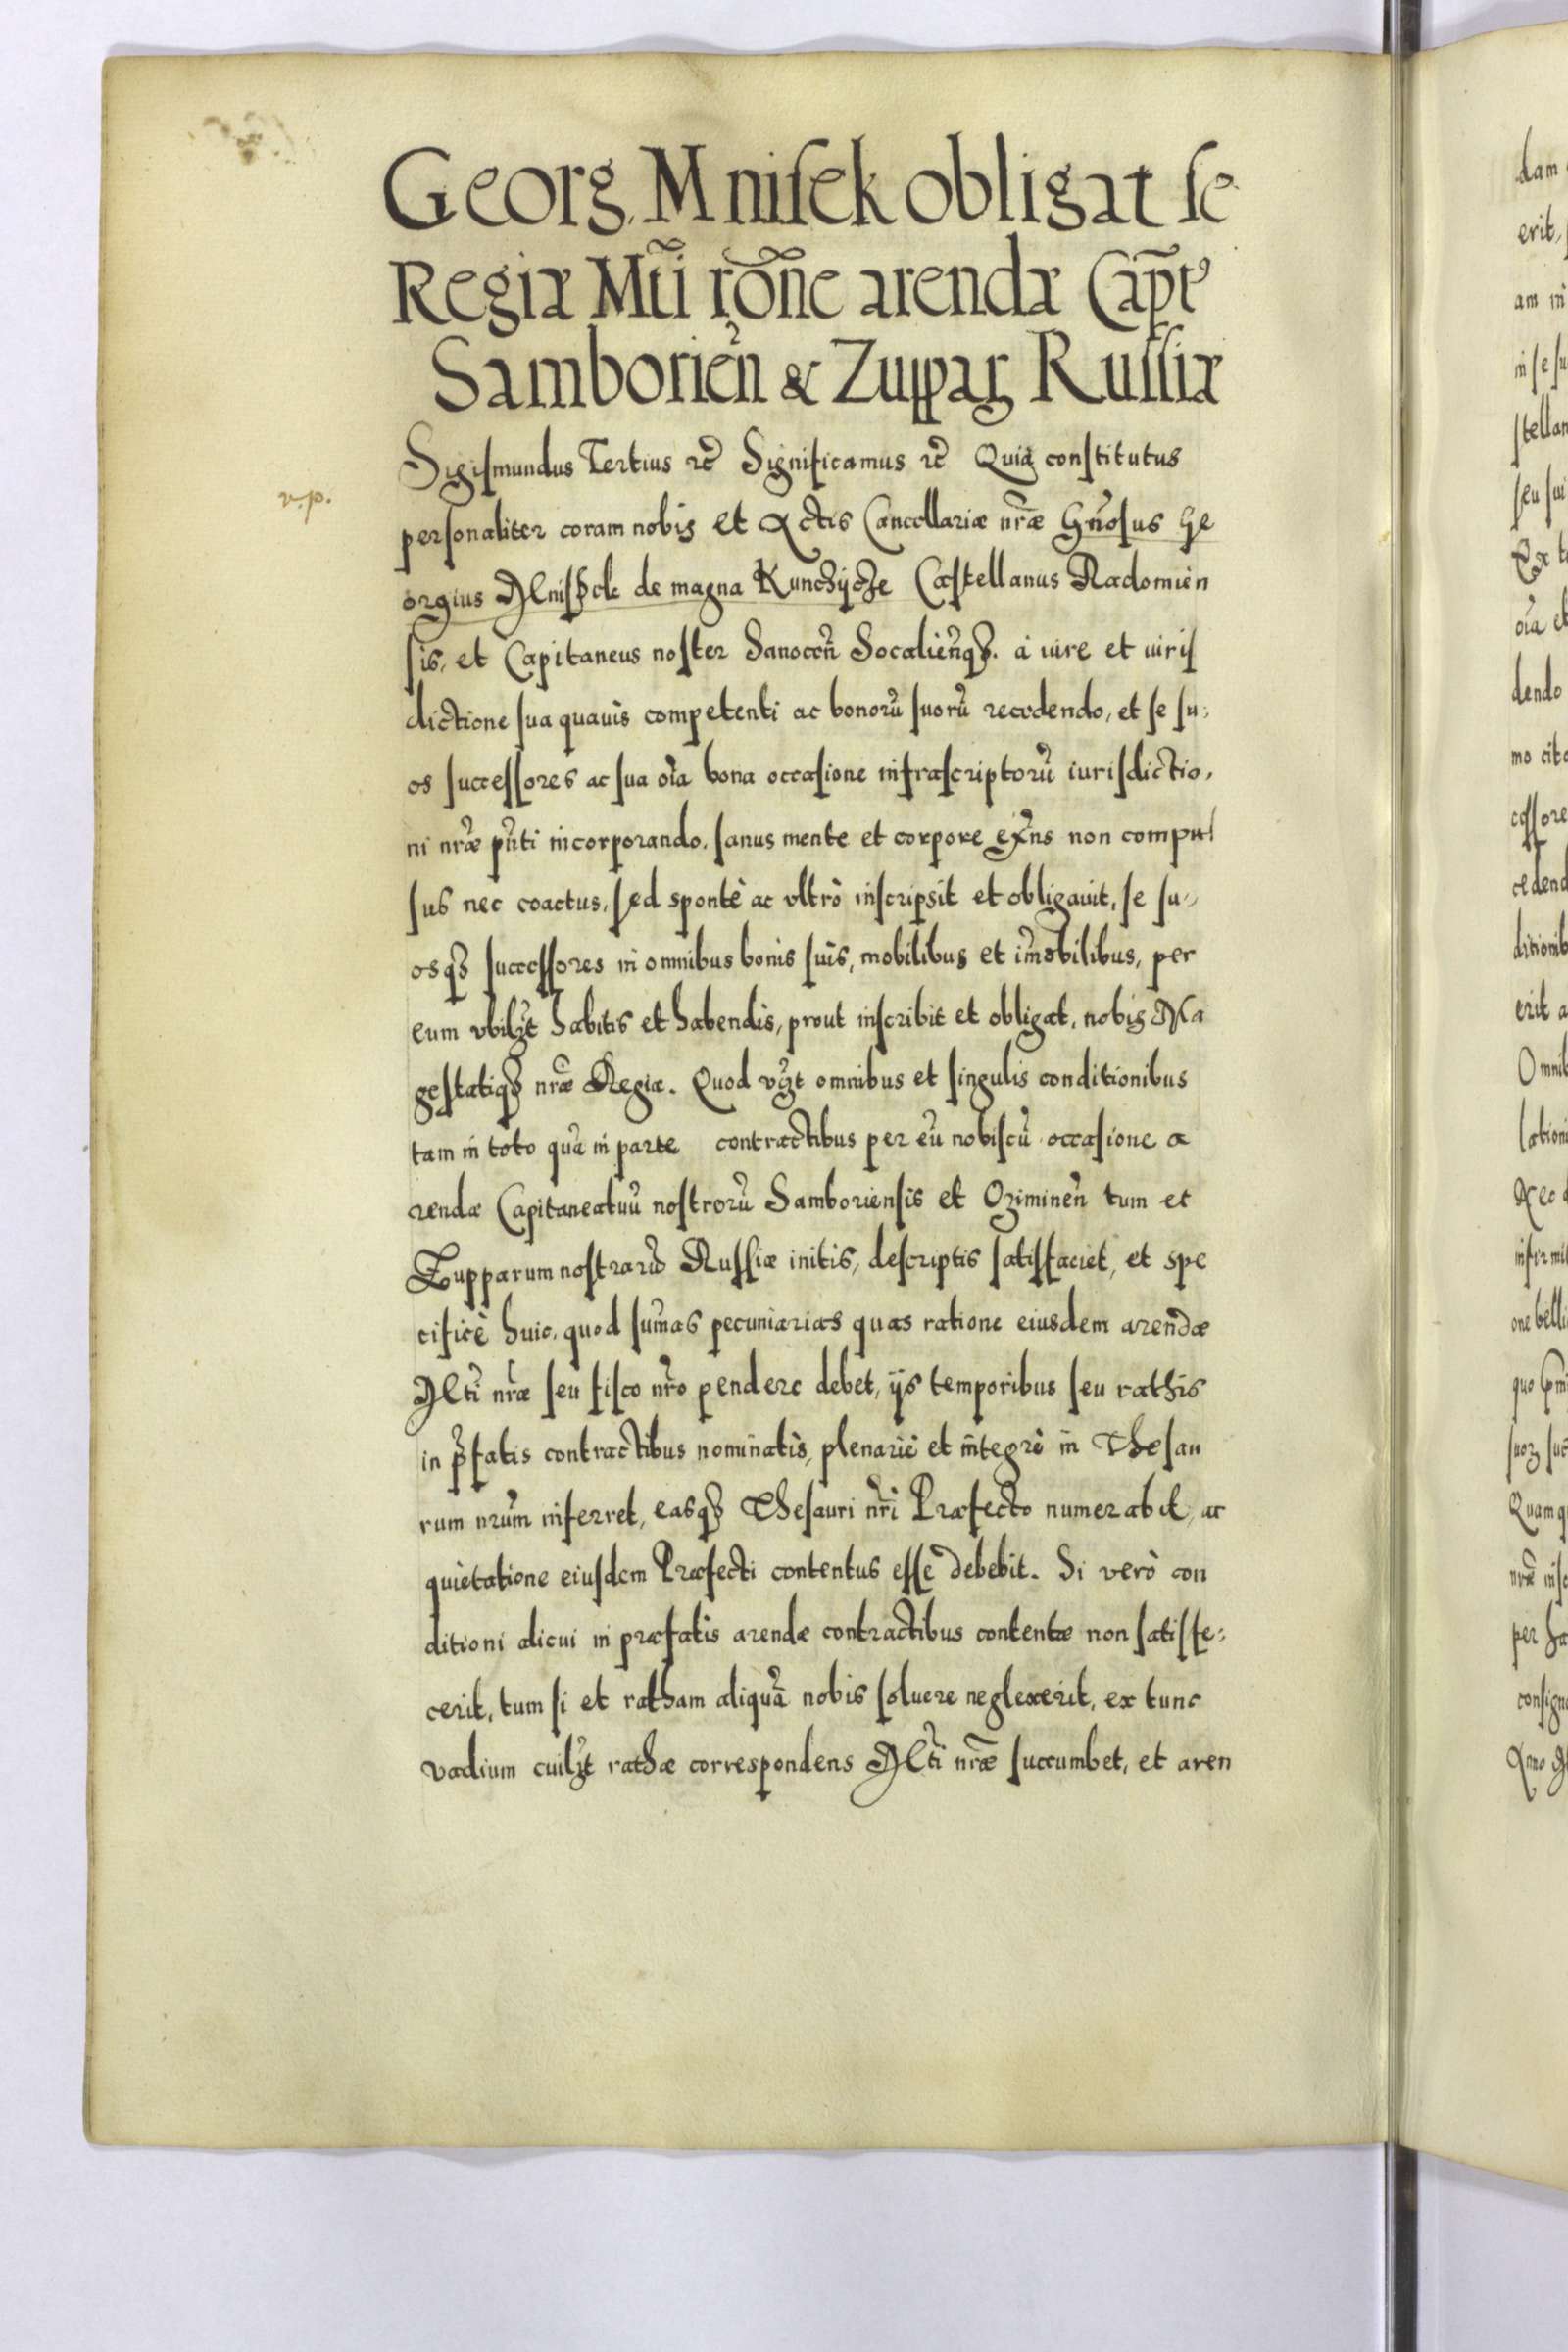 Georg. Mniſek obligat ſe
Regiæ Mti rõne arendæ Capt9
Samborień & Zuppaꝝ Ruſſiæ
Sigiſmundus Tertius ꝛc̃ Significamus ꝛc̃ Quia conſtitutus
v.p.
perſonaliter coram nobis et Actis Cancellariæ nr̃æ Gñoſus Ge
orgius Mniſek de magna Kunczycze Caſtellanus Radomien
ſis, et Capitaneus noſter Sanoceñ Socalieñqꝫ. à iure et iuriſ
dictione ſua quauis competenti ac bonorũ ſuorũ recedendo, et ſe ſu:
os ſucceſſores ac ſua oĩa bona occaſione infraſcriptorũ iurisdictio,
ni nr̃æ pñti incorporando. ſanus mente et corpore exñs non compul
ſus nec coactus, ſed spontè ac vltrò inſcripsit et obligauit, ſe ſu:
osqꝫ ſucceſſores in omnibus bonis ſuis, mobilibus et im̃obilibus, per
eum vbilꝫt habitis et habendis, prout inſcribit et obligat, nobis Ma
geſtatiqꝫ nr̃æ Regiæ. Quod vꝫt omnibus et ſingulis conditionibus
tam in toto quã in parte contractibus per eũ nobiſcũ occaſione a
rendæ Capitaneatuũ noſtrorũ Samboriensis et Ozimineñ tum et
Zupparum noſtrarũ Ruſſiæ initis, deſcriptis ſatisfaciet, et spe
cificè huic, quod ſum̃as pecuniarias quas ratione eiusdem arendæ
Mti nr̃æ ſeu fiſco nr̃o pendere debet, ijs temporibus ſeu rathis
in p̃fatis contractibus nominatis, plenariè et integrè in Theſau
rum nr̃um inferret, easqꝫ Theſauri nr̃i Præfecto numerabit, ac
quietatione eiuſdem Præfecti contentus eſſe debebit. Si verò con
ditioni alicui in præfatis arendæ contractibus contentæ non ſatiſfe:
cerit, tum ſi et ratham aliquã nobis ſoluere neglexerit, ex tunc
vadium cuilꝫt rathæ correspondens Mti nr̃æ ſuccumbet, et aren